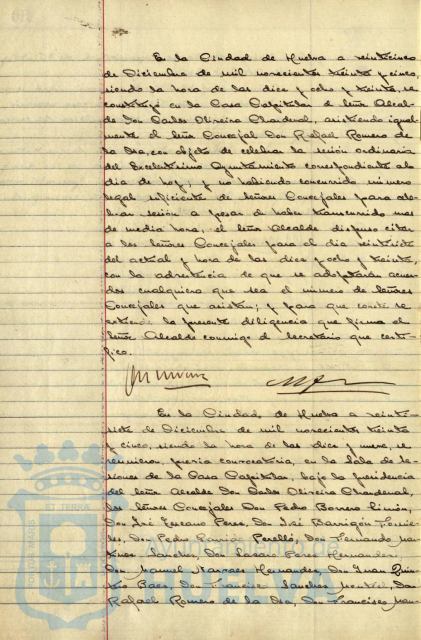 En la Ciudad de Huelva a veinticinco
de Diciembre de mil novecientos treinta y cinco,
siendo la hora de las diez y ocho y treinta, se
constituyó en la Casa Capitular el señor Alcal-
de Don Carlos Oliveira Chardenal, asistiendo igual-
mente el señor Concejal Don Rafael Romero de
la Osa, con objeto de celebrar la sesión ordinaria
del Excelentísimo Ayuntamiento correspondiente al
dia de hoy, y no habiendo concurrido número
legal suficiente de señores Concejales para ce-
lebrar sesión a pesar de haber transcurrido mas
de media hora, el señor Alcalde dispuso citar
a los señores Concejales para el dia veintisiete
del actual y hora de las diez y ocho y treinta,
con la advertencia de que se adoptarán acuer-
dos cualquiera que sea el número de señores
Concejales que asistan; y para que conste se
extiende la presente diligencia que firma el
señor Alcalde conmigo el Secretario que certi-
fico.
En la Ciudad de Huelva a veinti-
siete de Diciembre de mil novecientos treinta
y cinco, siendo la hora de las diez y nueve, se
reunieron, previa convocatoria, en la Sala de se-
siones de la Casa Capitular, bajo la presidencia
del señor Alcalde Don Carlos Oliveira Chardenal,
los señores Concejales Don Pedro Borrero Limón,
Don José Lozano Pérez, Don José Barrigón
Don Pedro Garrido Perelló, Don Fernando
Sánchez, Don Lázaro Pérez Hernández,
Don Manuel Narváez Hernández, Don Juan Quin-
tero Báez, Don Francisco Sánchez Don
Rafael Romero de la Osa, Don Francisco
ET TERRA
HUELVA